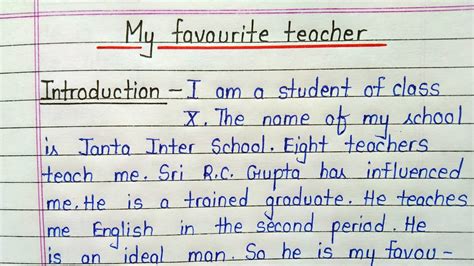 My favourite teacher
Introduction - I am a student of class
X. The name of my school
is Janta Inter School. Eight teachers
teach me. Sri R.C. Gupta has influenced
me. He is a trained graduate. He teaches
me English in the second period. He
is an ideal man. So he is my favou-